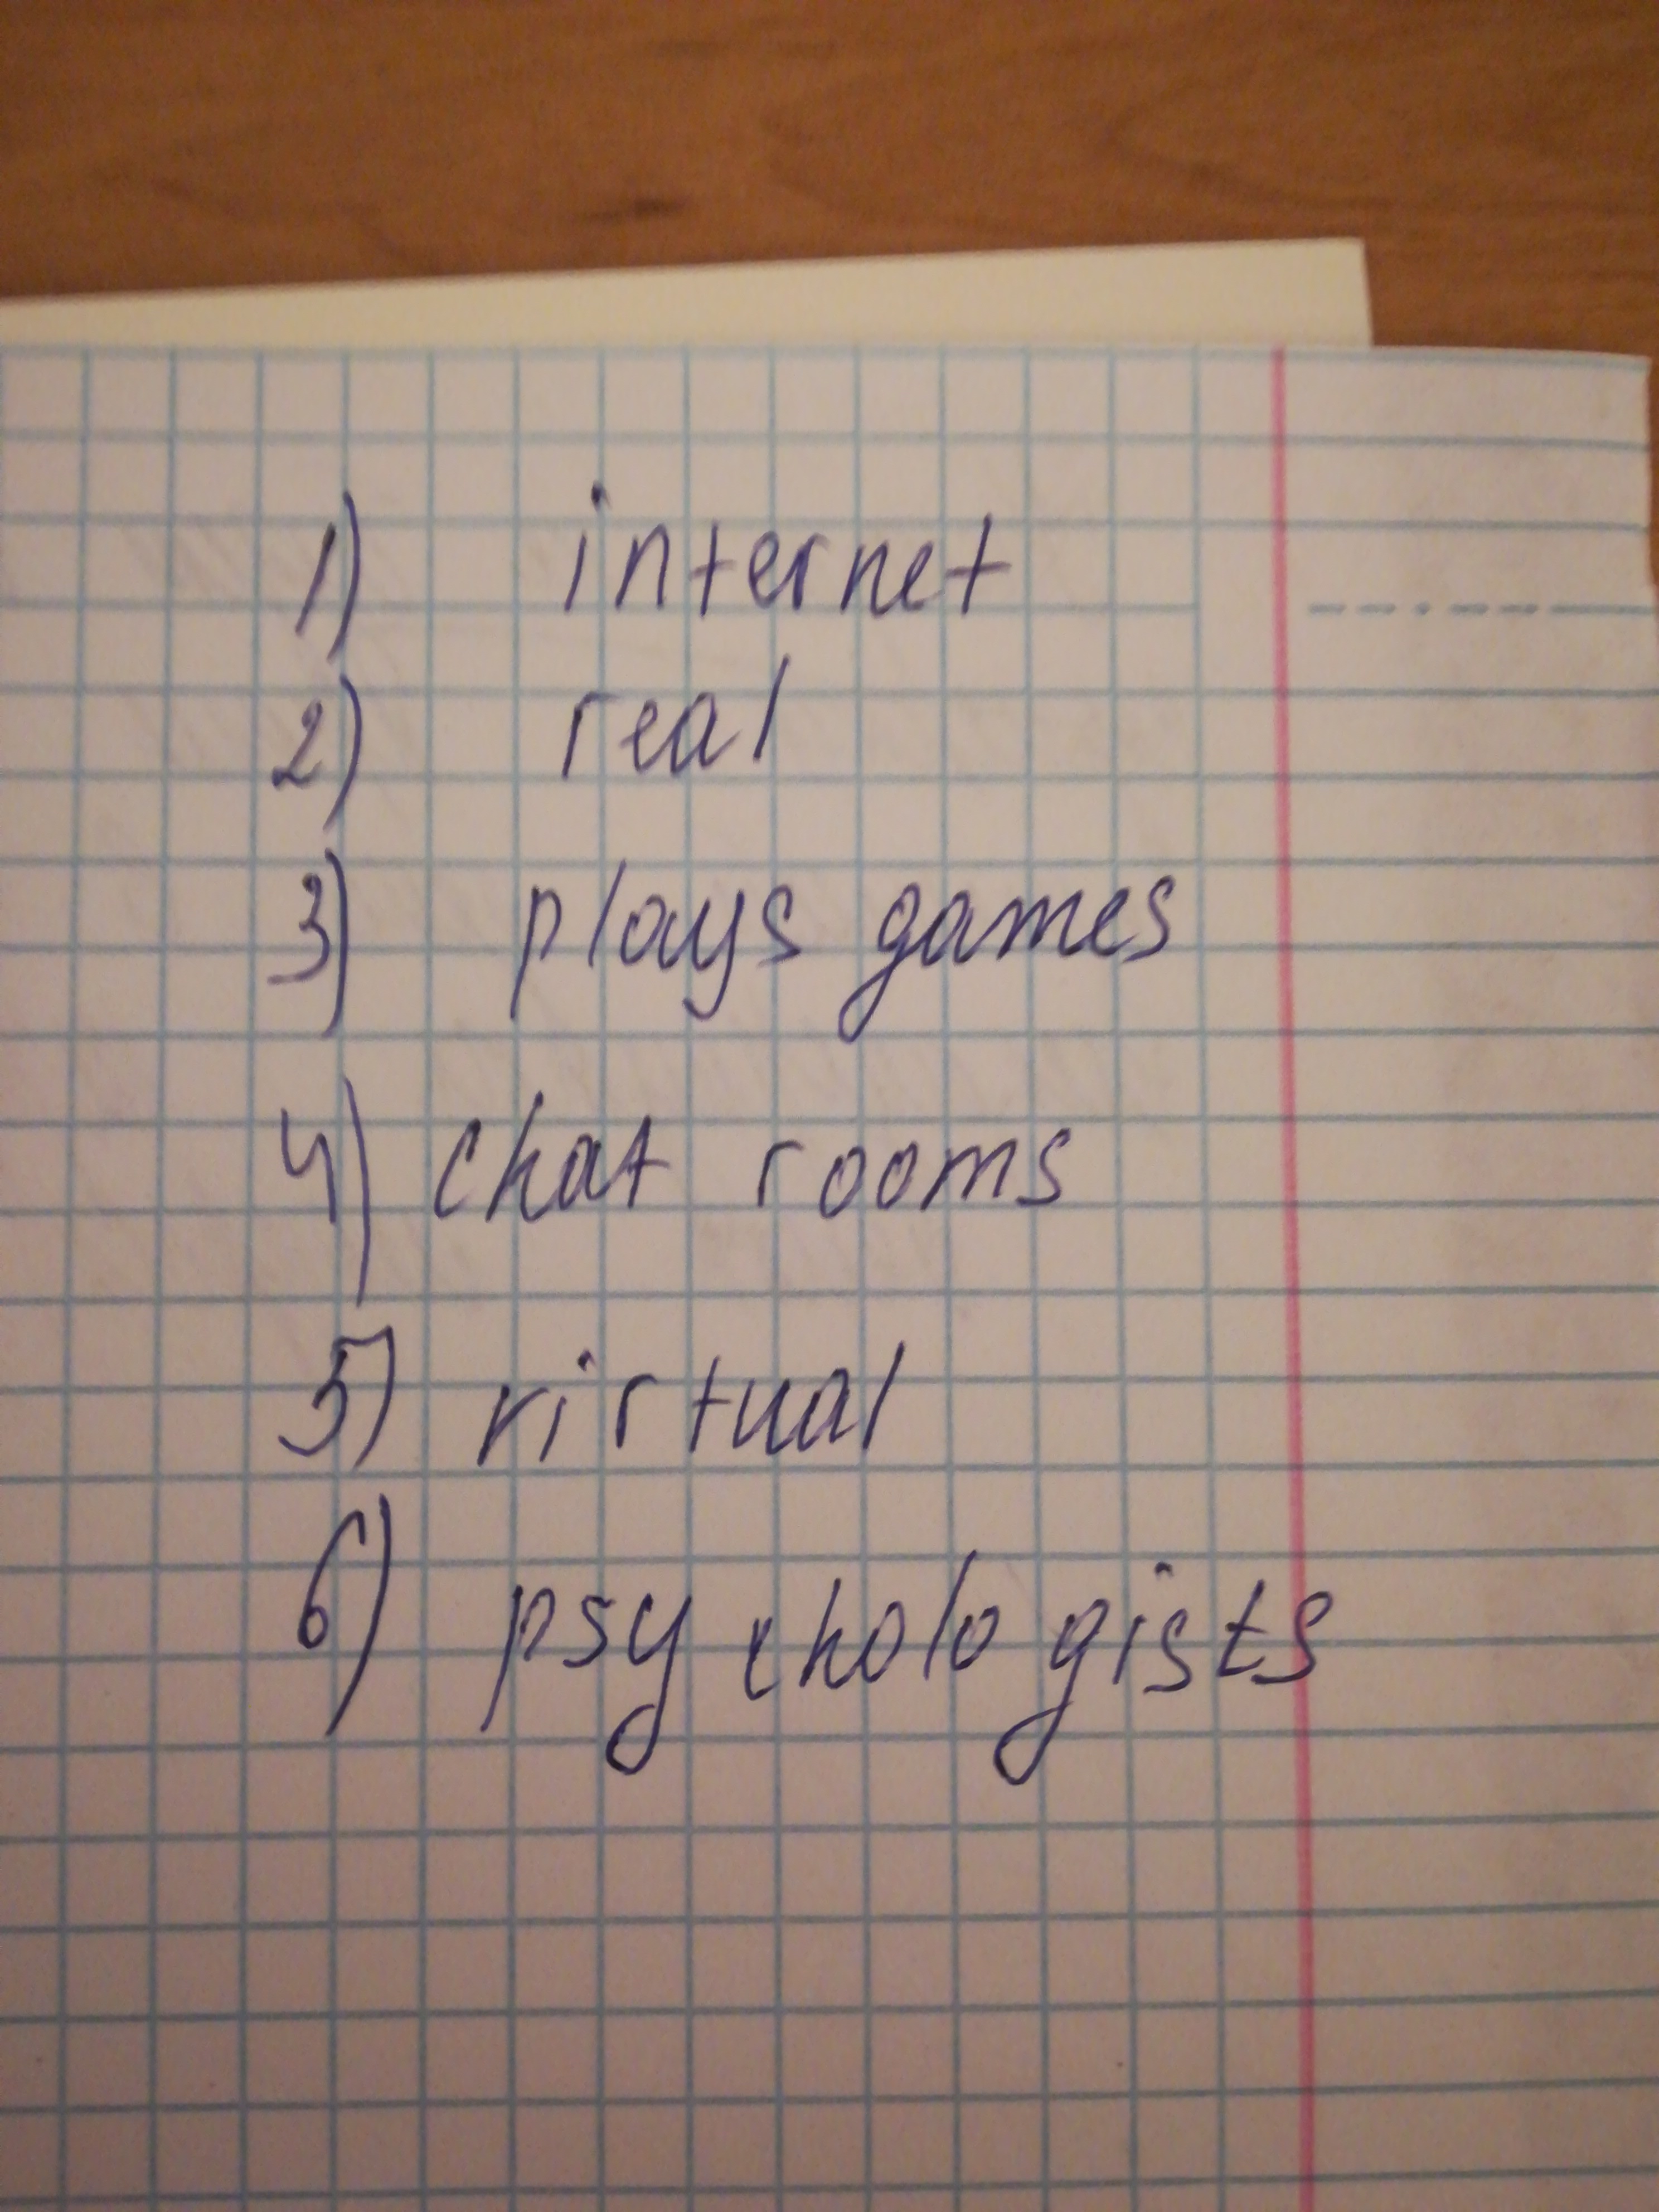 1) internet
2) real
3) plays games
4) chat rooms
5) virtual
6) psychologists